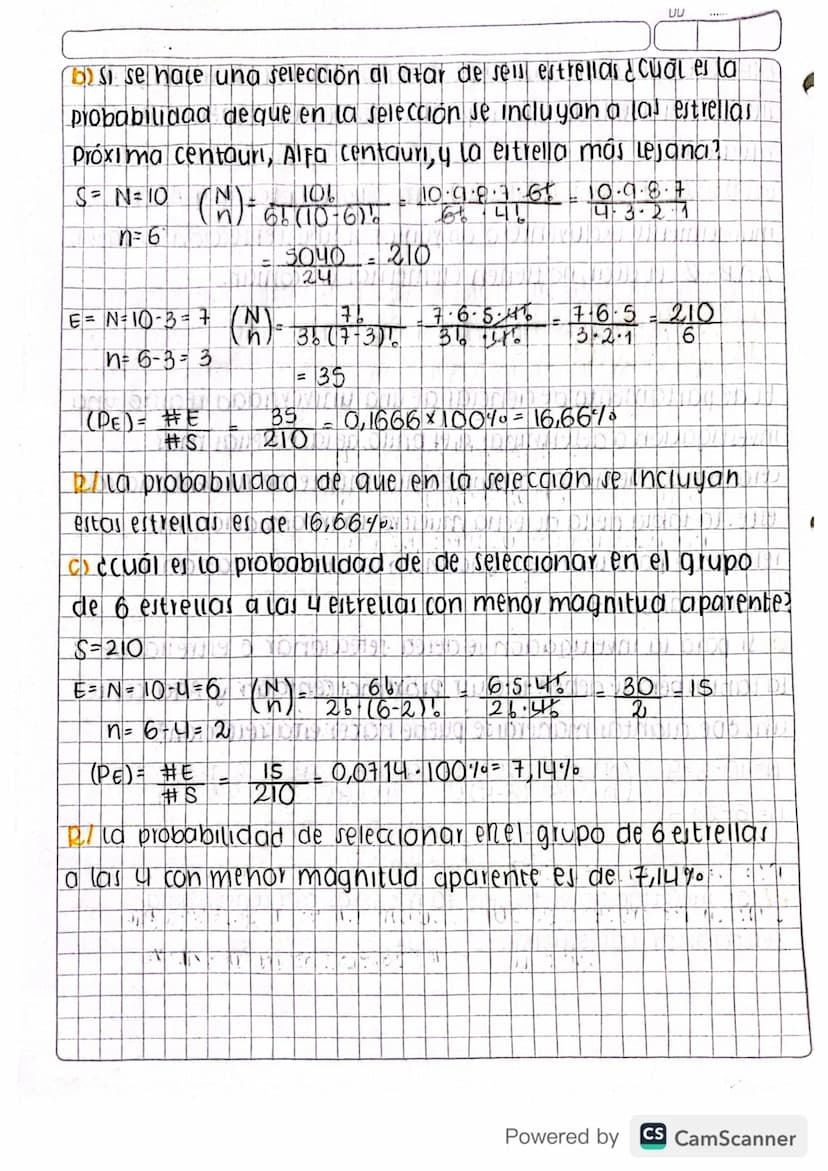 b) Si se hace una selección al azar de seis estrellas ¿Cuál es la
probabilidad de que en la selección se incluyan a las estrellas
Próxima centauri, Alfa centauri, y la estrella más lejana?
S= N=10 (N n)= 10! / 6!(10-6)! = 10·9·8·7·6! / 6!·4! = 10·9·8·7 / 4·3·2·1
n=6
= 5040 / 24 = 210
E= N=10-3=7 (N n)= 7! / 3!(7-3)! = 7·6·5·4! / 3!·4! = 7·6·5 / 3·2·1 = 210 / 6
n= 6-3= 3
= 35
(PE)= #E / #S = 35 / 210 = 0,1666 x 100% = 16,66%
R/ La probabilidad de que en la selección se incluyan
estas estrellas es de 16,66%.
c) ¿cuál es la probabilidad de de seleccionar en el grupo
de 6 estrellas a las 4 estrellas con menor magnitud aparente?
S=210
E= N= 10-4=6 (N n)= 6! / 2!·(6-2)! = 6·5·4! / 2!·4! = 30 / 2 = 15
n= 6-4= 2
(PE)= #E / #S = 15 / 210 = 0,0714·100%= 7,14%
R/ La probabilidad de seleccionar en el grupo de 6 estrellas
a las 4 con menor magnitud aparente es de 7,14%.
Powered by CS CamScanner